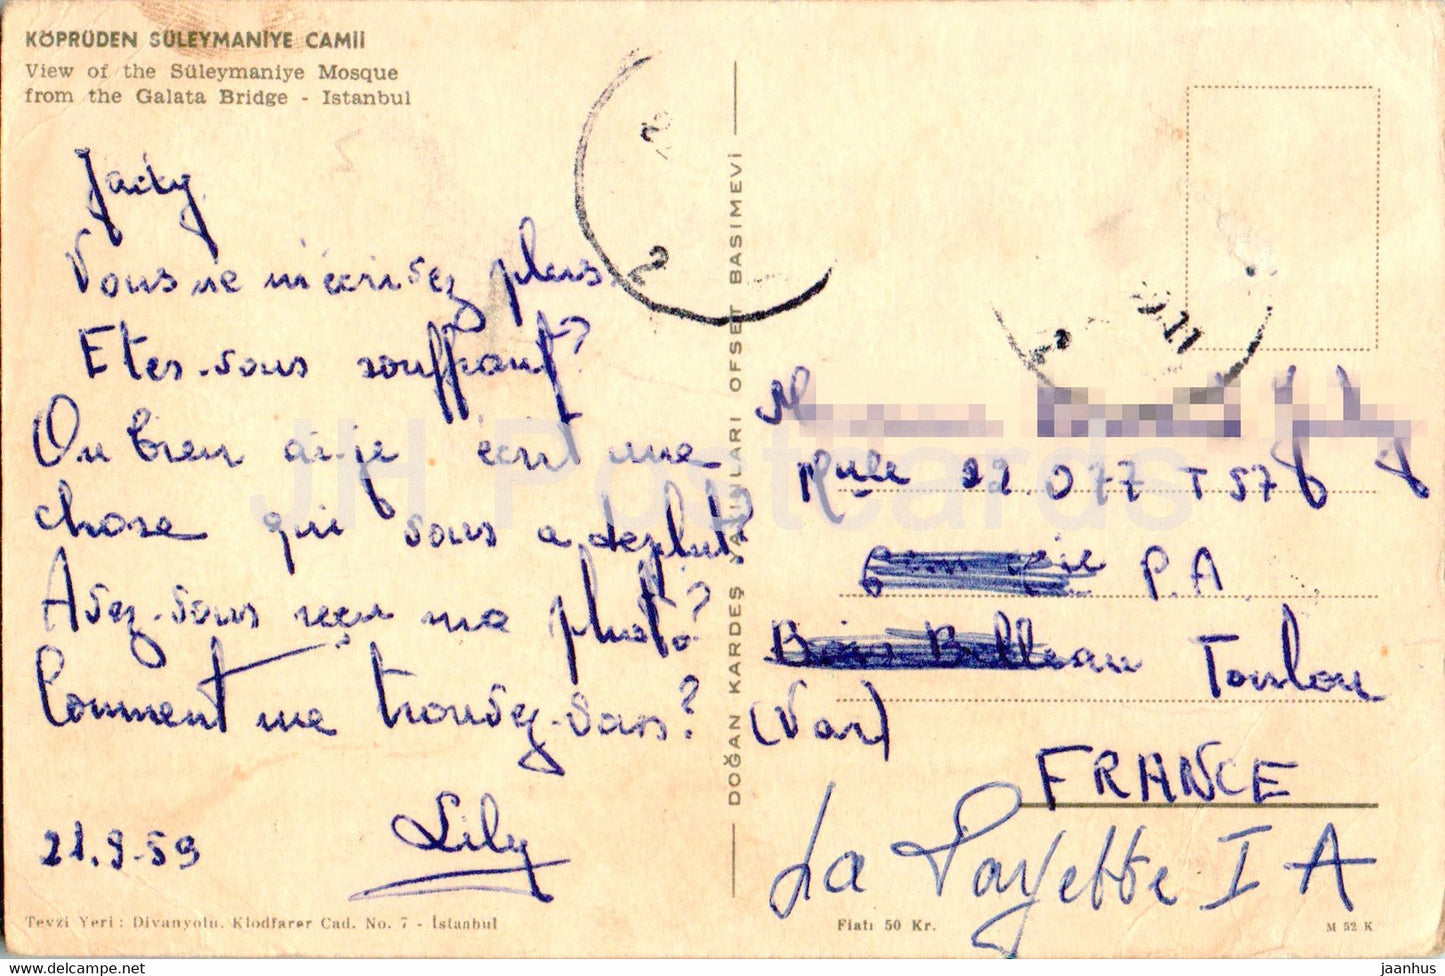 KÖPRÜDEN SÜLEYMANİYE CAMİİ
View of the Süleymaniye Mosque
from the Galata Bridge - Istanbul
Jacky
Vous ne m'écrivez plus.
Etes-vous souffrant?
Ou bien ai-je écrit une
chose qui vous a déplut?
Avez-vous reçu ma photo?
Comment me trouvez-vous?
Lily
21.9.59
Tevzi Yeri: Divanyolu. Klodfarer Cad. No. 7 - İstanbul
DOĞAN KARDEŞ YAYINLARI OFSET BASIMEVİ
Mle 22.077 T 57
P.A
Bois Belleau Toulon
(Var)
FRANCE
La Fayette I A
Fiatı 50 Kr.
M 52 K
JH Postcards
www.delcampe.net
jaanhus